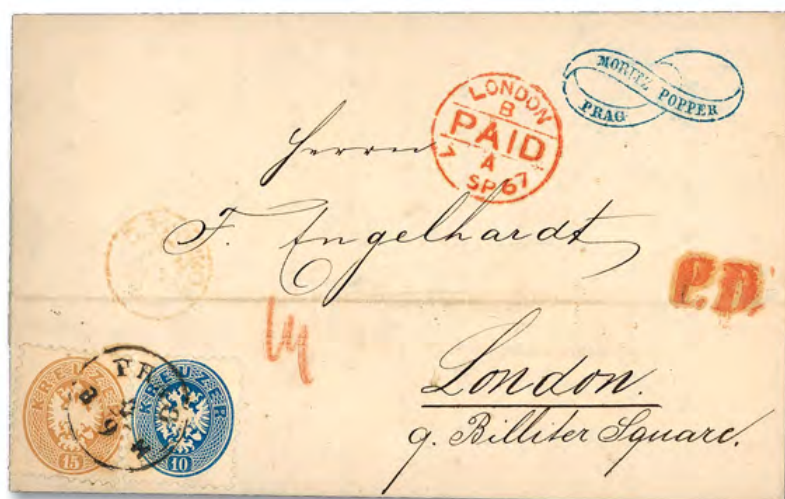 MORITZ POPPER
PRAG
LONDON
B
PAID
A
7 SP 67
Herrn
F. Engelhardt
P.D.
London.
9. Billiter Square.
KREUZER
15
KREUZER
10